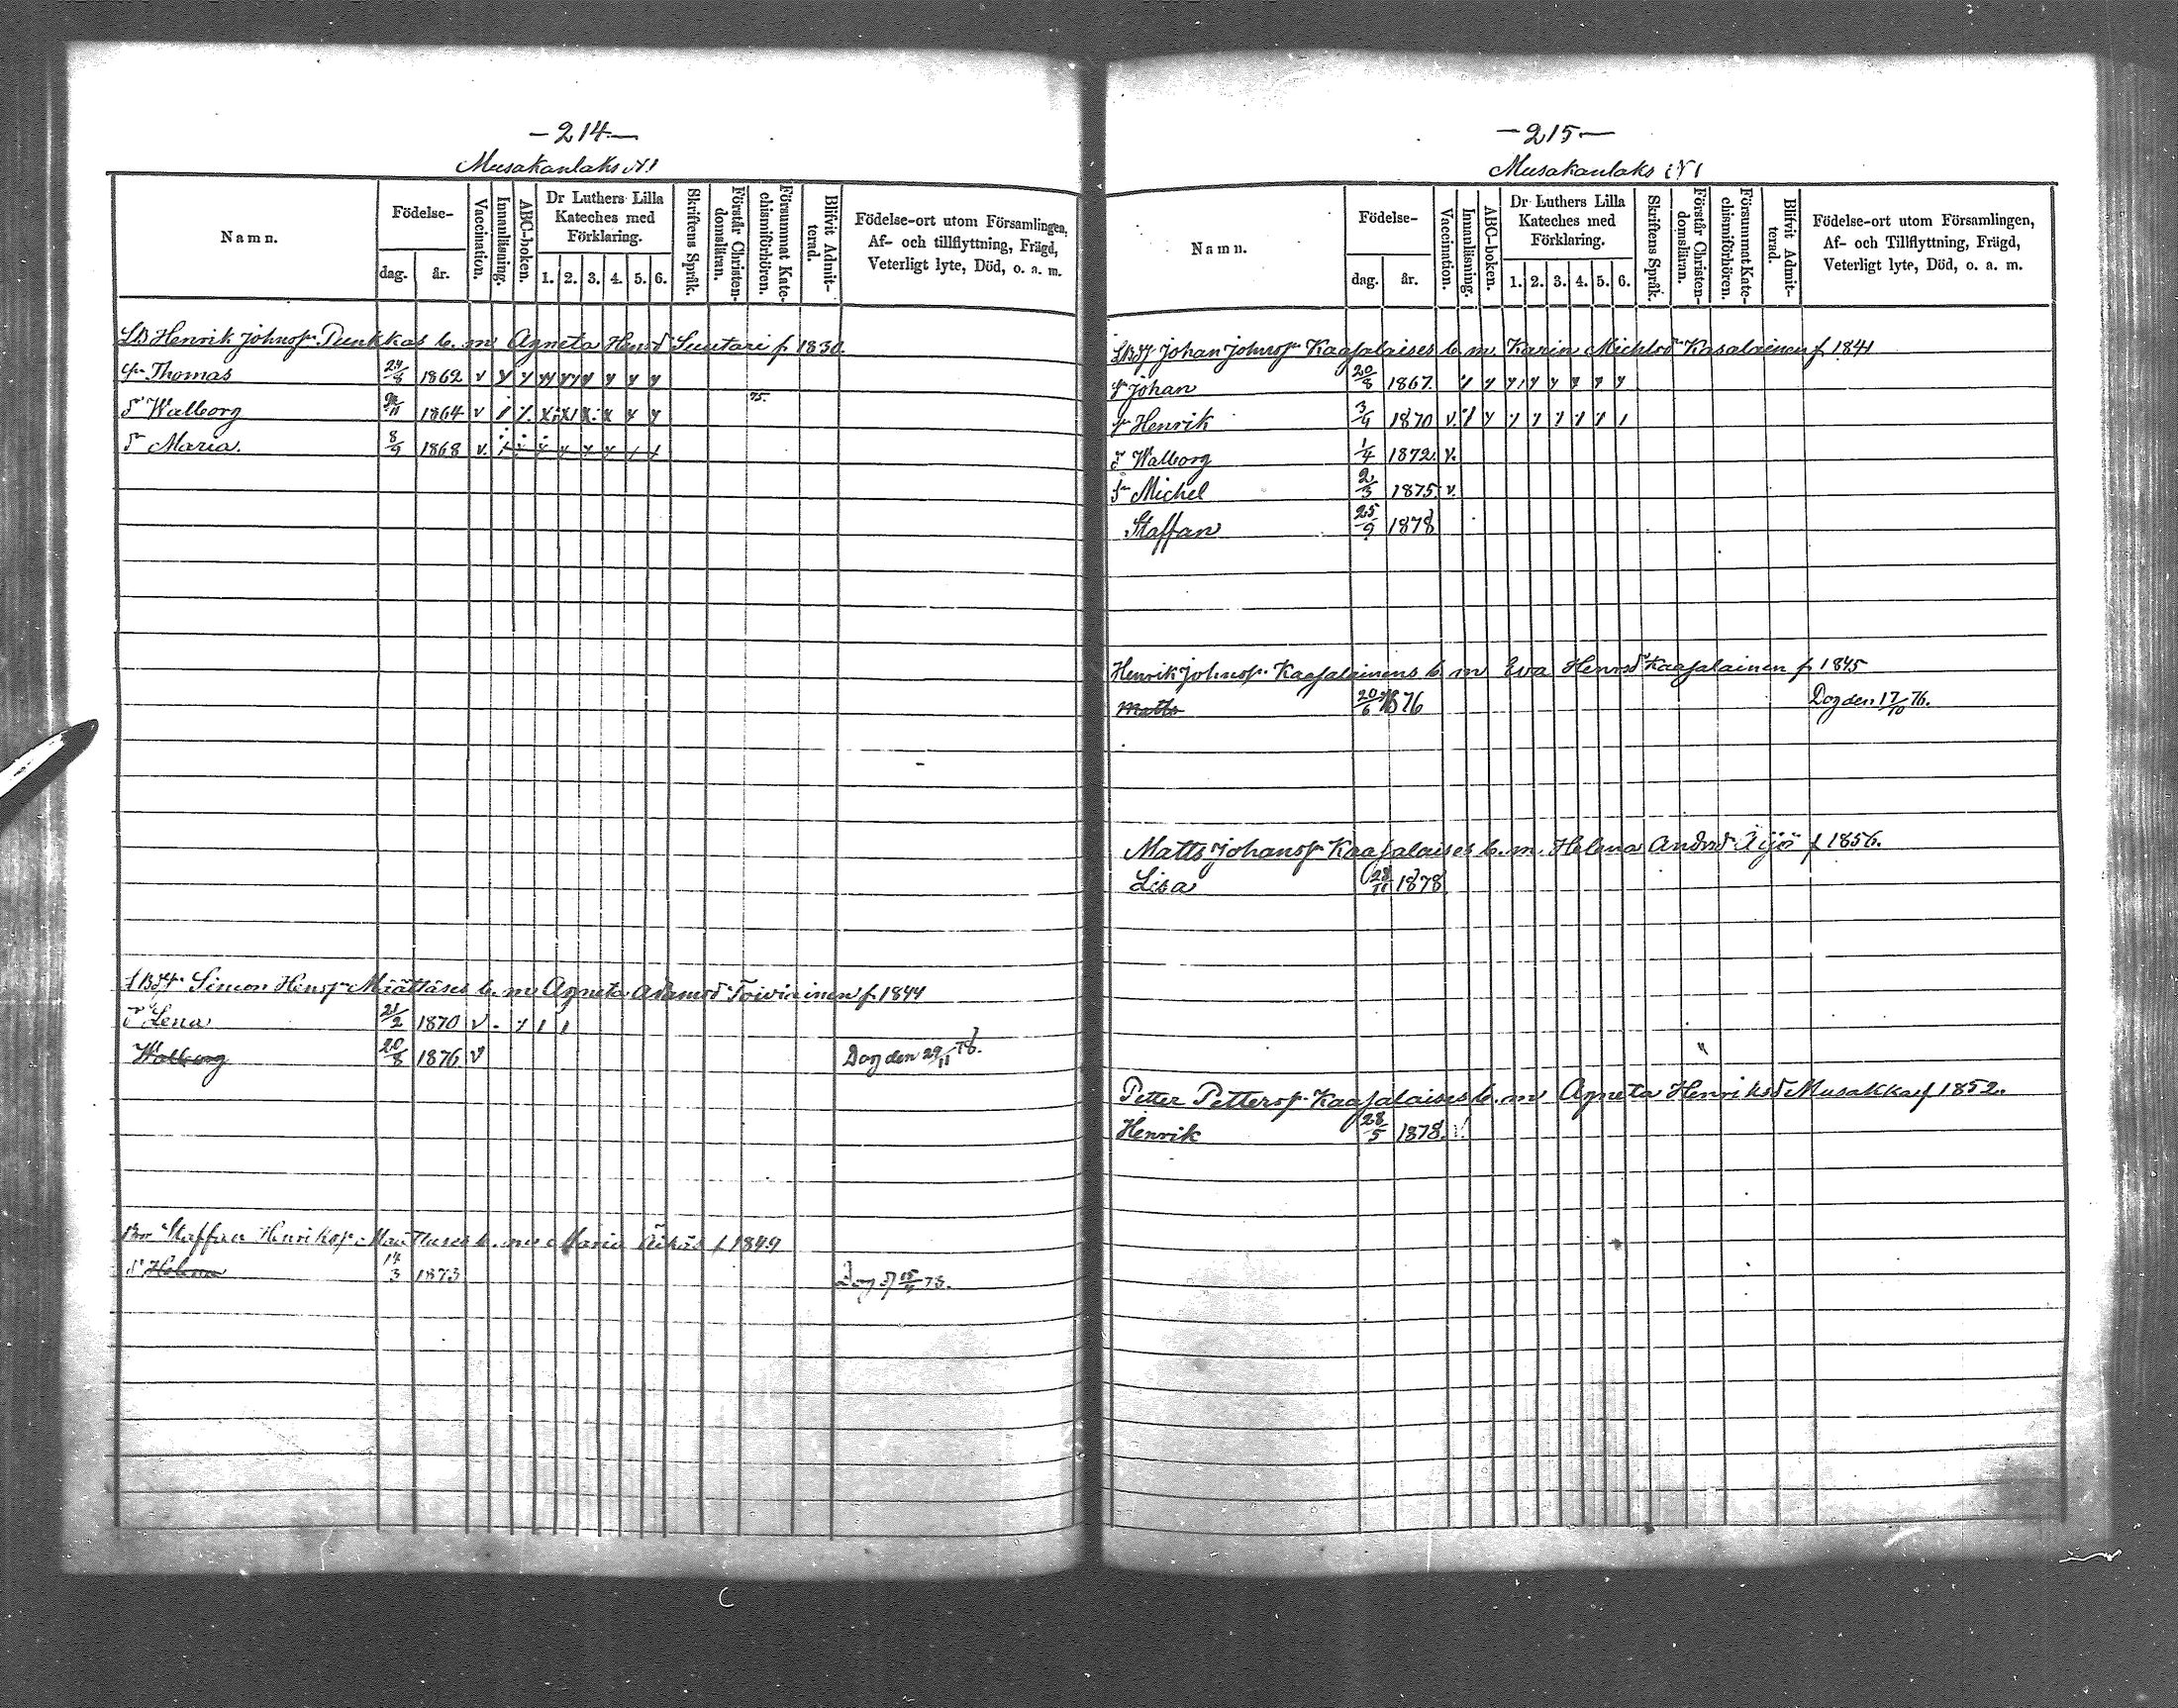 -214-
Musakanlaks N1
Namn.
Födelse-
dag.
år.
Vaccination.
Innanläsning.
ABC-boken.
Dr Luthers Lilla Kateches med Förklaring.
1. 2. 3. 4. 5. 6.
Skriftens Språk.
Förstår Christendomsläran.
Försummat Katechismiförhören.
Blifvit Admitterad.
Födelse-ort utom Församlingen,
Af- och tillflyttning, Frägd,
Veterligt lyte, Död, o. a. m.
Henrik Johnss. Punkkas b. m Agneta Hensd Suutari f 1830.
Thomas 24/8 1862 v
75.
dr Walborg 1864 v
dr Maria. 8/9 1868 v.
Simon Henss. Määttäses b. m Agneta Adamsd Toiviainen f. 1844
dr Lena 21/2 1870 v
Walborg 20/8 1876 v Dog den 29/11 78.
Staffan Henrikss. b. m Maria f 1849
dr Helena 14/3 1873 Dog d 78.
-215-
Musakanlaks N1
Namn.
Födelse-
dag.
år.
Vaccination.
Innanläsning.
ABC-boken.
Dr Luthers Lilla Kateches med Förklaring.
1. 2. 3. 4. 5. 6.
Skriftens Språk.
Förstår Christendomsläran.
Försummat Katechismiförhören.
Blifvit Admitterad.
Födelse-ort utom Församlingen,
Af- och Tillflyttning, Frägd,
Veterligt lyte, Död, o. a. m.
Johan Johnss. Kaasalaises b. m. Karin Michlsd Kasalainen f 1841
Johan 20/8 1867.
Henrik 3/9 1870 v.
dr Walborg 1/4 1872. v.
Michel 2/3 1875. v.
Staffan 25/9 1878
Henrik Johnss. Kaasalainens b. m Eva Henrsd Kaasalainen f 1845
Matts 20/6 1876 Dog den 17/10 76.
Matts Johanss. Kaasalaises b. m. Helena Andrsd Äijö f 1856.
Lisa 28/11 1878
Petter Petterss. Kaasalaises b. m Agneta Henriksd Musakka f 1852.
Henrik 28/5 1878. v.